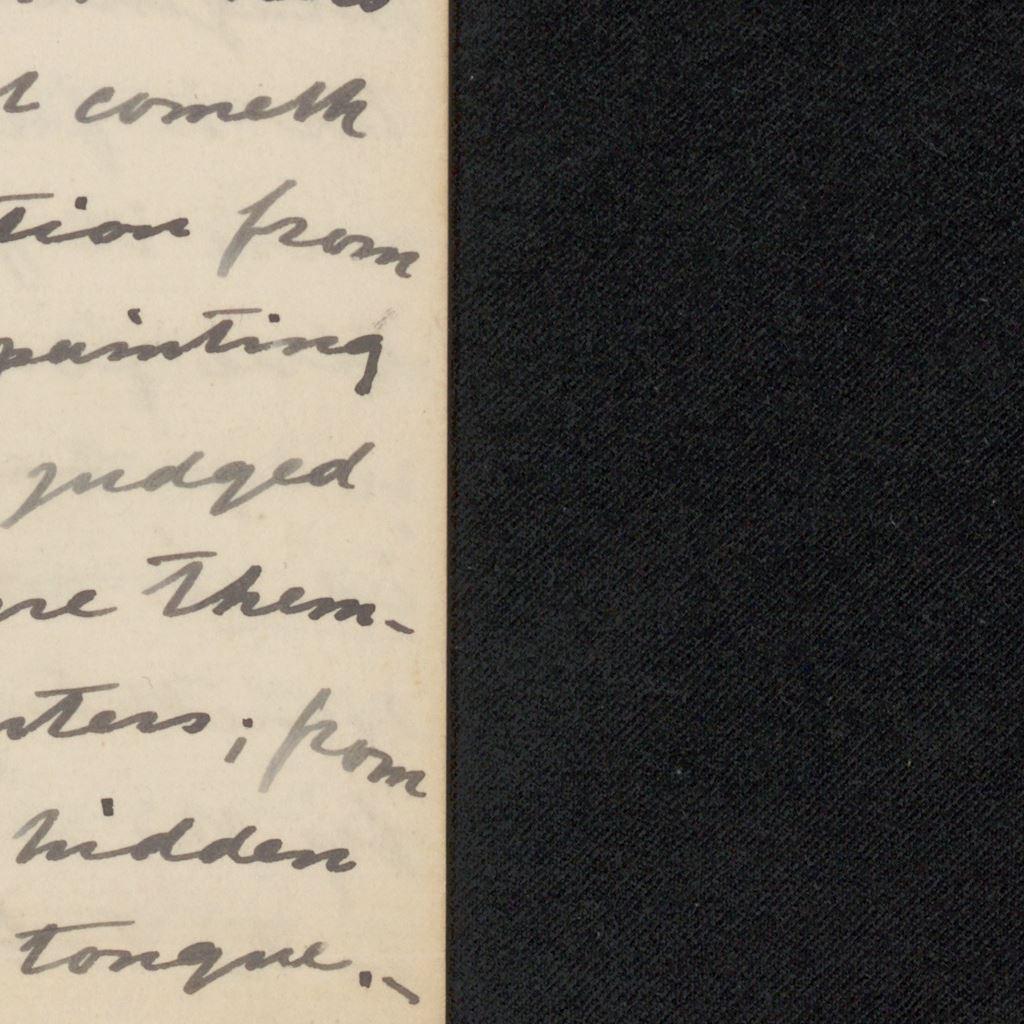 cometh
tion from
painting
judged
re them-
ters; from
hidden
tongue.-